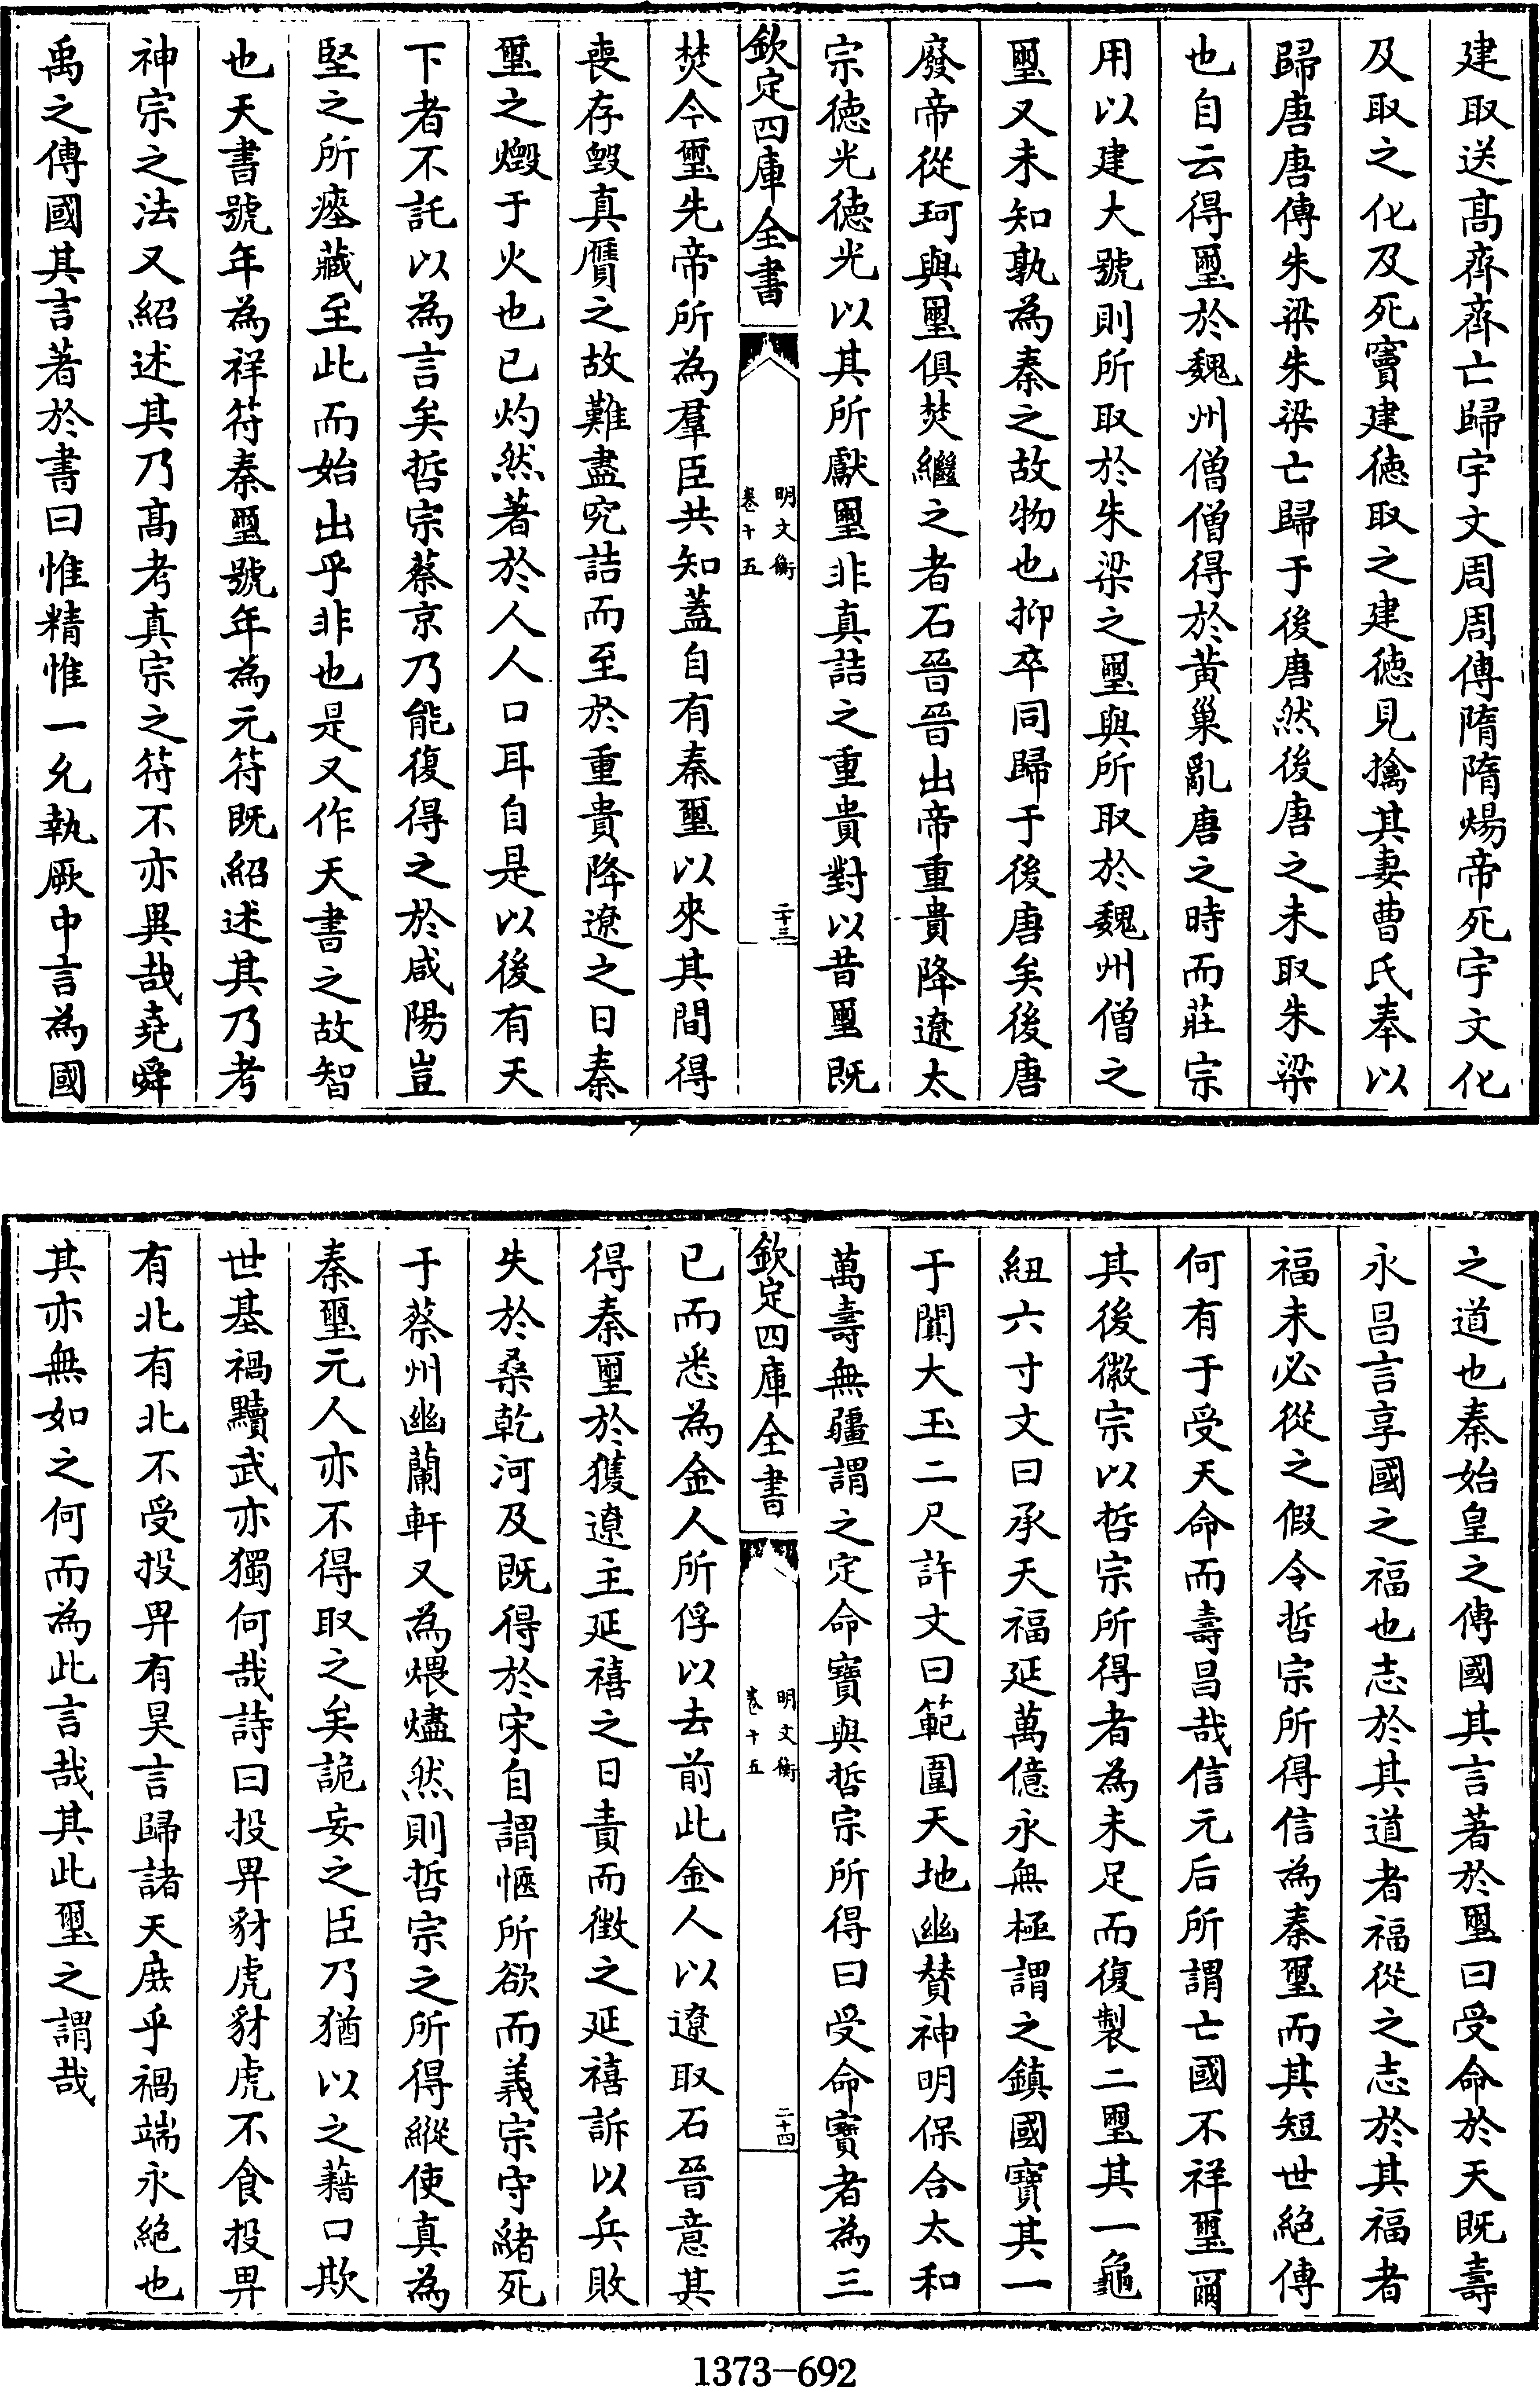 建取送髙齊齊亡歸宇文周周傳隋隋煬帝死宇文化
及取之化及死竇建徳取之建徳見擒其妻曹氏奉以
歸唐唐傳朱梁朱梁亡歸于後唐然後唐之未取朱梁
也自云得璽於魏州僧僧得於黄巢亂唐之時而莊宗
用以建大號則所取於朱梁之璽與所取於魏州僧之
璽又未知孰為秦之故物也抑卒同歸于後唐矣後唐
廢帝從珂與璽俱焚繼之者石晉晉出帝重貴降遼太
宗徳光徳光以其所獻璽非真詰之重貴對以昔璽既
欽定四庫全書
明文衡
卷十五
二十三
焚今璽先帝所為羣臣共知蓋自有秦璽以來其間得
喪存毁真贋之故難盡究詰而至於重貴降遼之日秦
璽之燬于火也已灼然著於人人口耳自是以後有天
下者不託以為言矣哲宗蔡京乃能復得之於咸陽豈
堅之所瘞藏至此而始出乎非也是又作天書之故智
也天書號年為祥符秦璽號年為元符既紹述其乃考
神宗之法又紹述其乃髙考真宗之符不亦異哉堯舜
禹之傳國其言著於書曰惟精惟一允執厥中言為國
之道也秦始皇之傳國其言著於璽曰受命於天既壽
永昌言享國之福也志於其道者福從之志於其福者
福未必從之假令哲宗所得信為秦璽而其短世絶傳
何有于受天命而壽昌哉信元后所謂亡國不祥璽爾
其後徽宗以哲宗所得者為未足而復製二璽其一龜
紐六寸文曰承天福延萬億永無極謂之鎮國寶其一
于闐大玉二尺許文曰範圍天地幽賛神明保合太和
萬壽無疆謂之定命寶與哲宗所得曰受命寶者為三
欽定四庫全書
明文衡
卷十五
二十四
已而悉為金人所俘以去前此金人以遼取石晉意其
得秦璽於獲遼主延禧之日責而徴之延禧訴以兵敗
失於桑乾河及既得於宋自謂愜所欲而義宗守緒死
于蔡州幽蘭軒又為煨燼然則哲宗之所得縱使真為
秦璽元人亦不得取之矣詭妄之臣乃猶以之藉口欺
世基禍黷武亦獨何哉詩曰投畀豺虎豺虎不食投畀
有北有北不受投畀有昊言歸諸天庶乎禍端永絶也
其亦無如之何而為此言哉其此璽之謂哉
1373-692